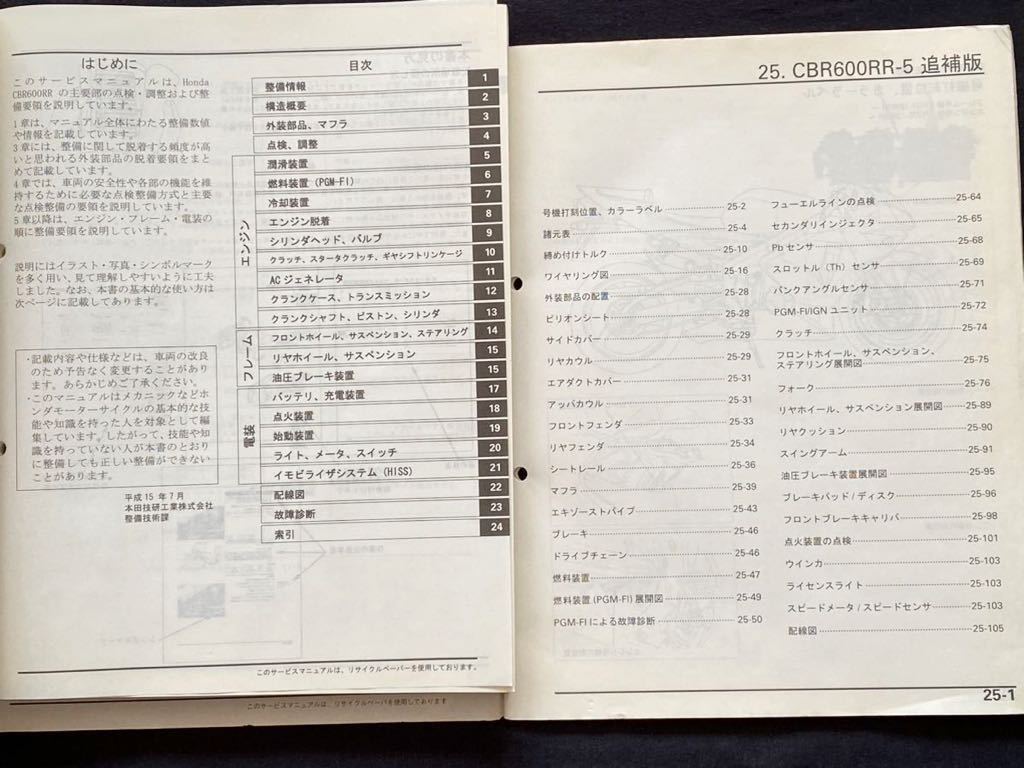 はじめに
このサービスマニュアルは、Honda
CBR600RR の主要部の点検・調整および整
備要領を説明しています。
1章は、マニュアル全体にわたる整備数値
や情報を記載しています。
3章には、整備に関して脱着する頻度が高
いと思われる外装部品の脱着要領をまと
めて記載しています。
4章では、車両の安全性や各部の機能を維
持するために必要な点検整備方式と主要
な点検整備の要領を説明しています。
5章以降は、エンジン・フレーム・電装の
順に整備要領を説明しています。
説明にはイラスト・写真・シンボルマーク
を多く用い、見て理解しやすいように工夫
しました。なお、本書の基本的な使い方は
次ページに記載してあります。
・記載内容や仕様などは、車両の改良
のため予告なく変更することがあり
ます。あらかじめご了承ください。
・このマニュアルはメカニックなどホ
ンダモーターサイクルの基本的な技
能や知識を持った人を対象として編
集しています。したがって、技能や知
識を持っていない人が本書のとおり
に整備しても正しい整備ができない
ことがあります。
平成15年7月
本田技研工業株式会社
整備技術課
目次
整備情報 1
構造概要 2
外装部品、マフラ 3
点検、調整 4
エンジン
潤滑装置 5
燃料装置(PGM-FI) 6
冷却装置 7
エンジン脱着 8
シリンダヘッド、バルブ 9
クラッチ、スタータクラッチ、ギヤシフトリンケージ 10
ACジェネレータ 11
クランクケース、トランスミッション 12
クランクシャフト、ピストン、シリンダ 13
フレーム
フロントホイール、サスペンション、ステアリング 14
リヤホイール、サスペンション 15
油圧ブレーキ装置 15
電装
バッテリ、充電装置 17
点火装置 18
始動装置 19
ライト、メータ、スイッチ 20
イモビライザシステム(HISS) 21
配線図 22
故障診断 23
索引 24
このサービスマニュアルは、リサイクルペーパーを使用しております。
このサービスマニュアルは、リサイクルペーパーを使用しております
25. CBR600RR-5 追補版
号機打刻位置、カラーラベル 25-2
諸元表 25-4
締め付けトルク 25-10
ワイヤリング図 25-16
外装部品の配置 25-28
ピリオンシート 25-28
サイドカバー 25-29
リヤカウル 25-29
エアダクトカバー 25-31
アッパカウル 25-31
フロントフェンダ 25-33
リヤフェンダ 25-34
シートレール 25-36
マフラ 25-39
エキゾーストパイプ 25-43
ブレーキ 25-46
ドライブチェーン 25-46
燃料装置 25-47
燃料装置(PGM-FI)展開図 25-49
PGM-FIによる故障診断 25-50
フューエルラインの点検 25-64
セカンダリインジェクタ 25-65
Pbセンサ 25-68
スロットル(Th)センサ 25-69
バンクアングルセンサ 25-71
PGM-FI/IGNユニット 25-72
クラッチ 25-74
フロントホイール、サスペンション、
ステアリング展開図 25-75
フォーク 25-76
リヤホイール、サスペンション展開図 25-89
リヤクッション 25-90
スイングアーム 25-91
油圧ブレーキ装置展開図 25-95
ブレーキパッド/ディスク 25-96
フロントブレーキキャリパ 25-98
点火装置の点検 25-101
ウインカ 25-103
ライセンスライト 25-103
スピードメータ/スピードセンサ 25-103
配線図 25-105
25-1